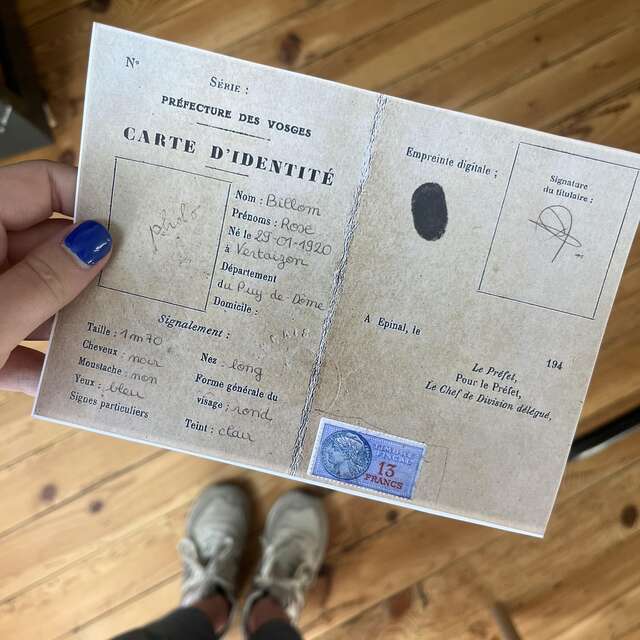 N°
SÉRIE :
PRÉFECTURE DES VOSGES
CARTE D'IDENTITÉ
photo
Nom : Billom
Prénoms : Rose
Né le 29-01-1920
à Vertaizon
Département
du Puy de Dôme
Domicile :
Signalement :
Taille : 1m70
Cheveux : noir
Moustache : non
Yeux : bleu
Signes particuliers
Nez : long
Forme générale du
visage : rond
Teint : clair
Empreinte digitale ;
Signature
du titulaire :
A Epinal, le
194
Le Préfet,
Pour le Préfet,
Le Chef de Division délégué,
13
FRANCS